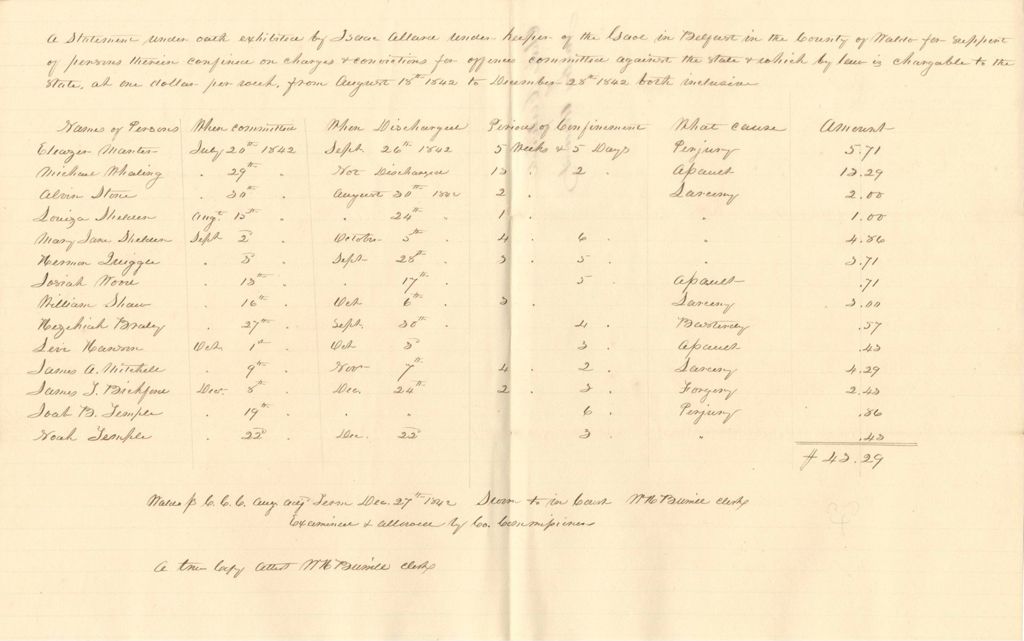 A Statement under oath exhibited by Isaac Allard under keeper of the Gaol in Belfast in the County of Waldo for support
of persons therein confined on charges & convictions for offences committed against the State & which by law is chargable to the
State, at one dollar per week, from August 18th 1842 to December 28th 1842 both inclusive
Names of Persons When committed When Discharged Period of Confinement What cause Amount
Eleazer Manter July 20th 1842 Sept. 26th 1842 5 Weeks & 5 Days Perjury 5.71
Michael Whaling . 29th . Not Discharged 13 . 2 . Assault 13.29
Alvin Stone . 30th . August 30th 1842 2 . Larceny 2.00
Louiza Augt 15th . . 24th . 1 . " 1.00
Mary Jane Sept 2d . October 5th . 4 . 6 . " 4.86
Herman . 3d . Sept. 28th . 3 . 5 . " 3.71
Josiah . 13th . . 17th . 5 . Assault .71
William Shaw . 16th . Oct 6th . 3 . Larceny 3.00
Hezekiah Braley . 27th . Sept. 30th . 4 . Bastardy .57
Levi Oct. 1st . Oct 3d . 3 . Assault .43
James A. Mitchell . 9th . Nov 7th . 4 . 2 . Larceny 4.29
James T. Bickford Dec. 8th . Dec. 24th . 2 . 3 . Forgery 2.43
Joab B. Temple . 19th . . . 6 . Perjury .86
Noah Temple . 22d . Dec. 22d 3 . " .43
$ 43.29
Waldo ss C.C.C. Aug. adj Term Dec. 27th 1842 Sworn to in Court clerk
Examined & allowed by Co. Commissioners
A true Copy Attest clerk